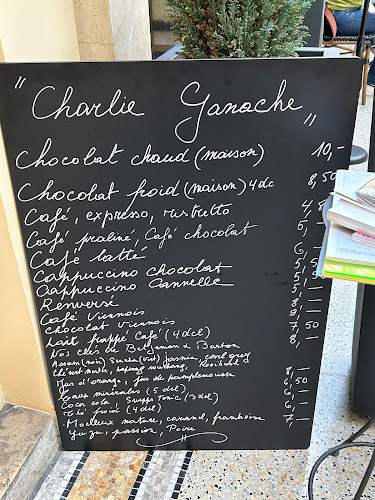 "Charlie Ganache"
Chocolat chaud (maison) 10,—
Chocolat froid (maison) 4dc 8,50
Café, expresso, ristretto 4,8
Café praliné, Café chocolat 5,—
Café latté 6,—
Cappuccino chocolat 5,5
Cappuccino Cannelle 5,5
Renversé 5,—
Café Viennois 8,—
Chocolat Viennois 9,—
Lait frappé Café (4 dcl) 7,50
Nos thés de Benjamin & Barton 8,—
Assam (noir) Sencha (vert) Jasmin, earl grey
Thé vert menthe, lapsang souchong, Rooibos
Jus d'orange, jus de pamplemousse 8,—
Eaux minérales (5 dcl) 6,50
Coca cola Sweppe Tonic (3 dcl) 6,—
Thé froid (4 dcl) 6,—
Moelleux nature, caramel, framboise 7,—
Yuzu, passion, Poire